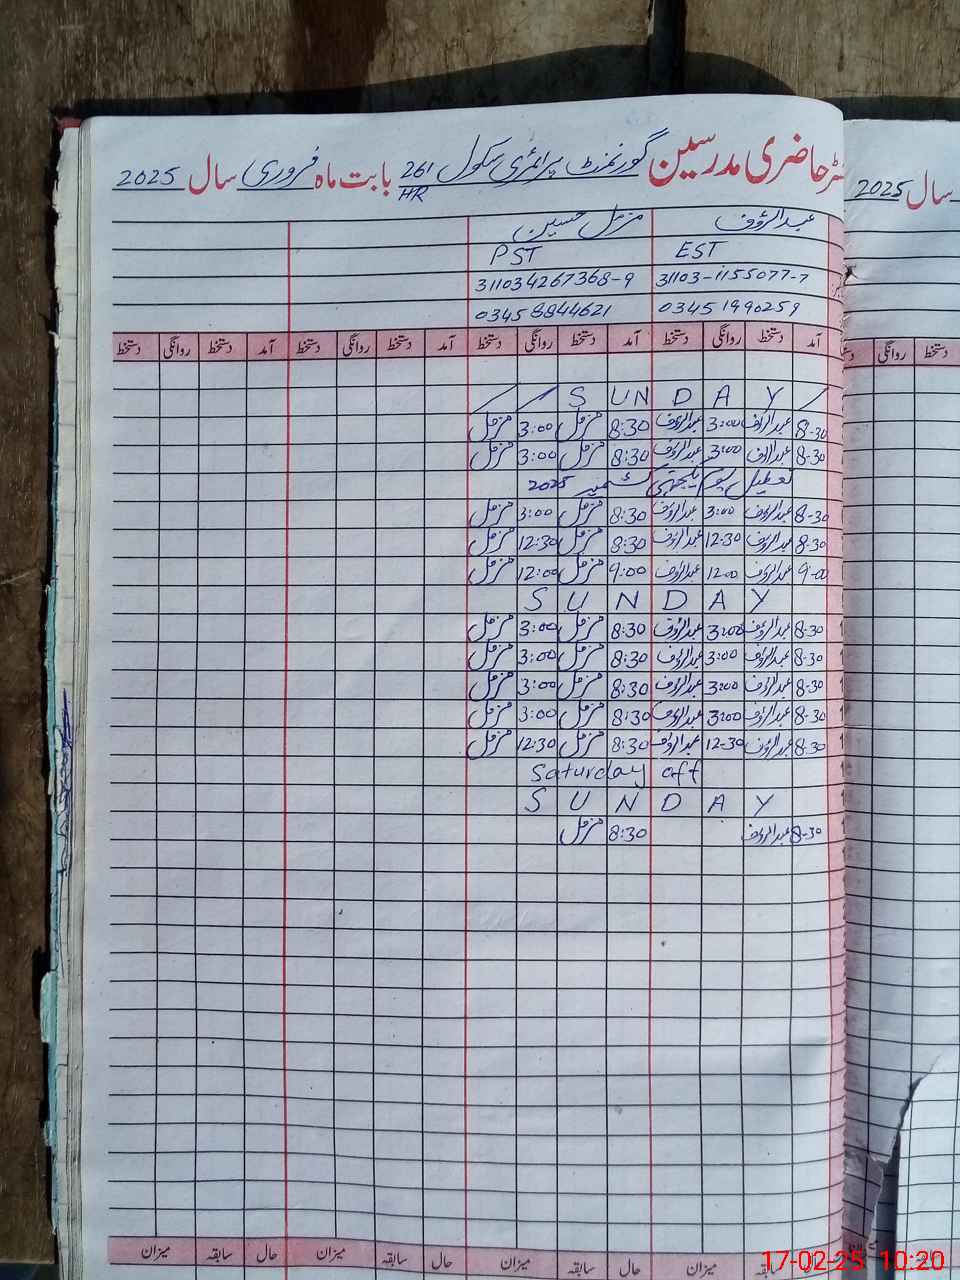 رجسٹر حاضری مدرسین گورنمنٹ پرائمری سکول 261/HR بابت ماہ فروری سال 2025
سال 2025
عبدالرؤف مزمل حسین
EST PST
31103-1155077-7 311034267368-9
03451990259 03458844621
آمد دستخط روانگی دستخط آمد دستخط روانگی دستخط آمد دستخط روانگی دستخط آمد دستخط روانگی دستخط
دستخط روانگی
SUNDAY
8-30 عبدالرؤف 3:00 عبدالرؤف 8:30 مزمل 3:00 مزمل
8-30 عبدالرؤف 3:00 عبدالرؤف 8:30 مزمل 3:00 مزمل
تعطیل یوم یکجہتی کشمیر 2025
8-30 عبدالرؤف 3:00 عبدالرؤف 8:30 مزمل 3:00 مزمل
8-30 عبدالرؤف 12-30 عبدالرؤف 8:30 مزمل 12:30 مزمل
9-00 عبدالرؤف 12-00 عبدالرؤف 9:00 مزمل 12:00 مزمل
SUNDAY
8-30 عبدالرؤف 3:00 عبدالرؤف 8:30 مزمل 3:00 مزمل
8-30 عبدالرؤف 3:00 عبدالرؤف 8:30 مزمل 3:00 مزمل
8-30 عبدالرؤف 3:00 عبدالرؤف 8:30 مزمل 3:00 مزمل
8-30 عبدالرؤف 3:00 عبدالرؤف 8:30 مزمل 3:00 مزمل
8-30 عبدالرؤف 12-30 عبدالرؤف 8:30 مزمل 12:30 مزمل
Saturday off
SUNDAY
8-30 عبدالرؤف 8:30 مزمل
سابقہ میزان حال سابقہ میزان حال سابقہ میزان حال سابقہ میزان
17-02-25 10:20